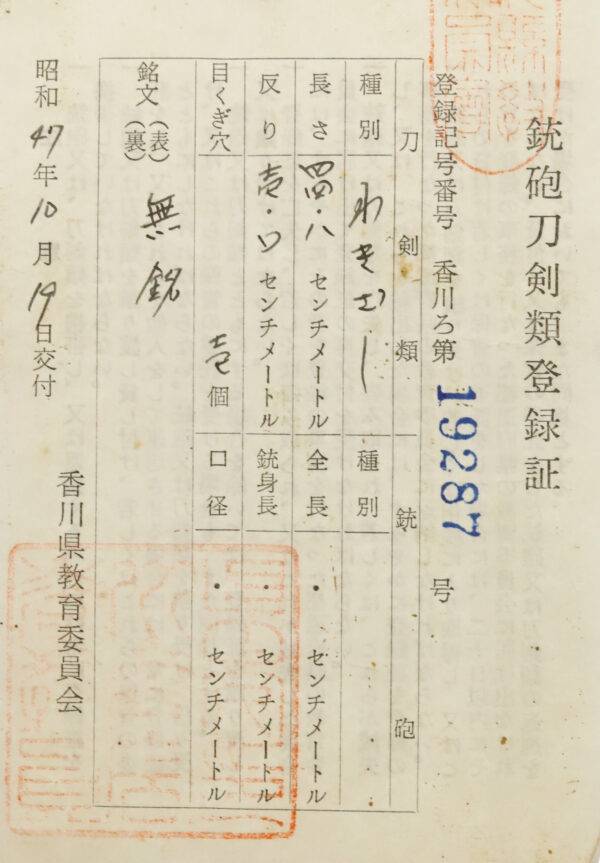 銃砲刀剣類登録証
登録記号番号 香川ろ第 19287 号
刀剣類
種別 わきざし
長さ 四四・八 センチメートル
反り 壱・〇 センチメートル
目くぎ穴 壱個
銃砲
種別
全長 ・ センチメートル
銃身長 ・ センチメートル
口径 ・ センチメートル
銘文 (表) 無銘
(裏)
昭和47年10月19日交付
香川県教育委員会